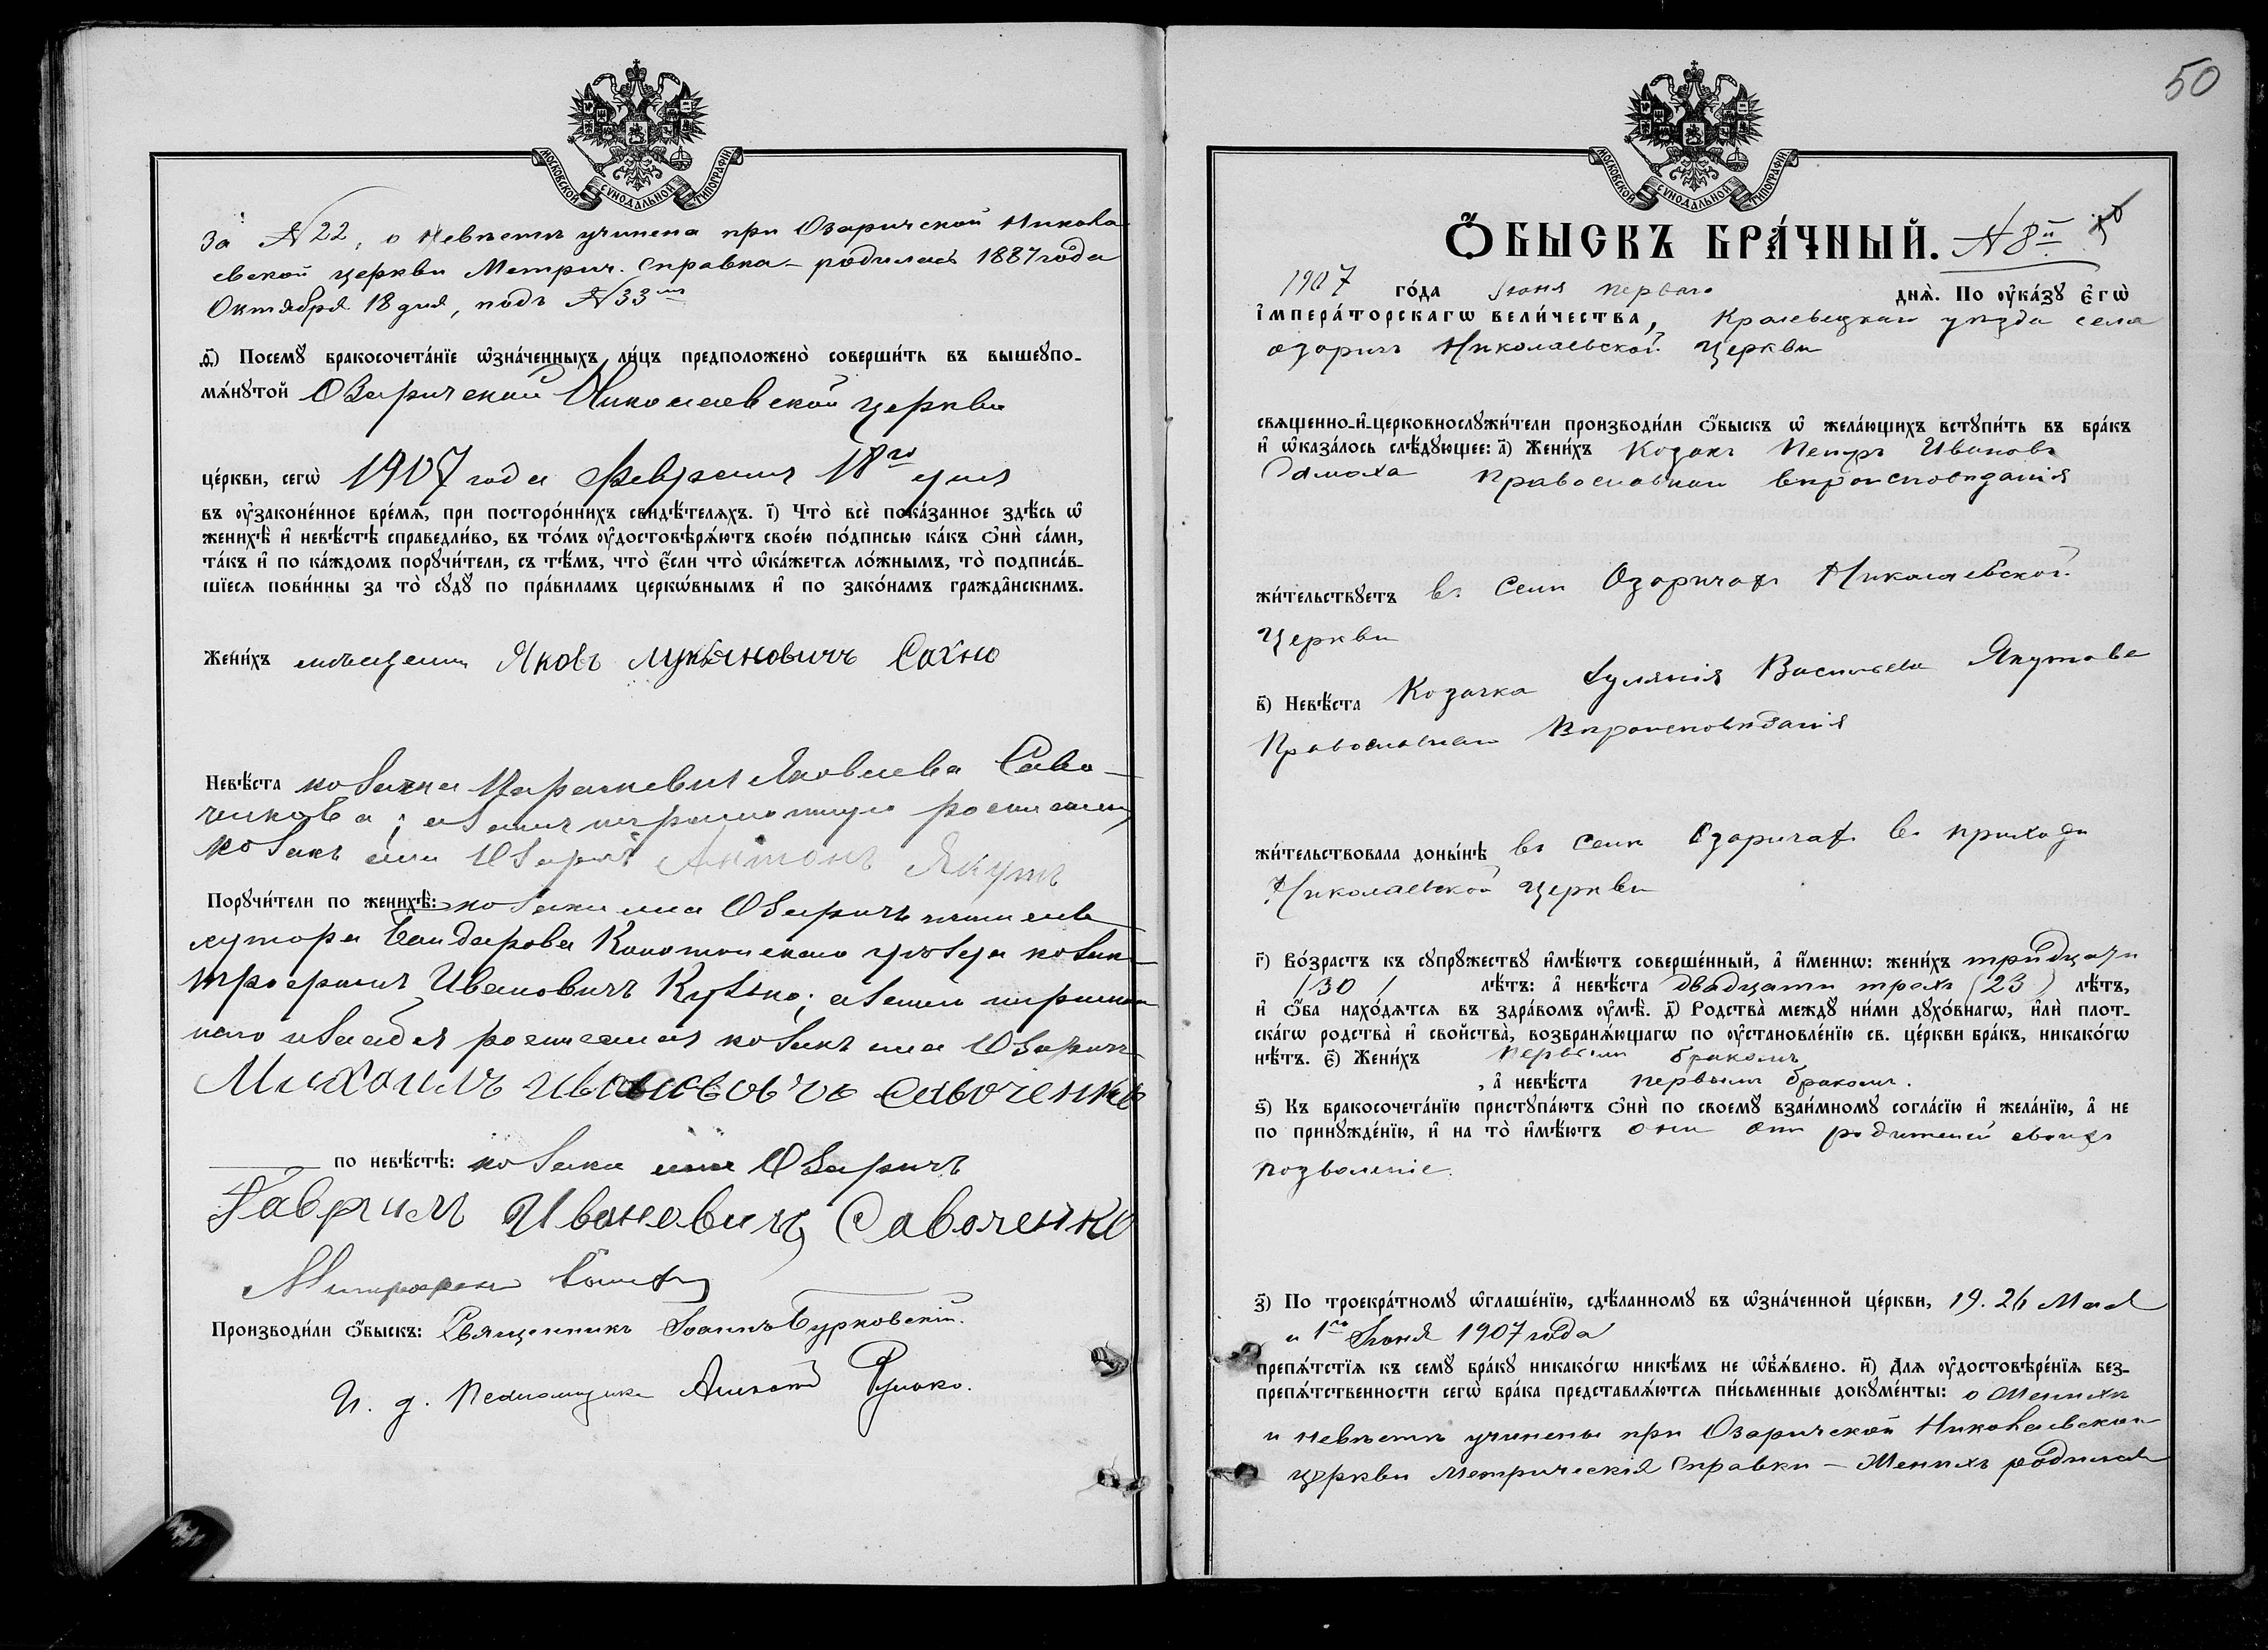 МОСКОВСКОЙ СѴНОДАЛЬНОЙ ТИПОГРАФІИ.
За № 22, о Невѣстѣ учинена при Озаричской Никола-
евской церкви Метрич. Справка – родилась 1887 года
Октября 18 дня, подъ № 33мъ
ѳ҃) Посемꙋ̀ бракосочета́нїе ѡ҆зна́ченныхъ ли́цъ предположено̀ соверши́ть въ вышеꙋпо-
мѧ́нꙋтой Озаричской Николаевской церкви
це́ркви, сегѡ̀ 1907 года Февраля 18го дня
въ ᲂу҆законе́нное вре́мѧ, при посторо́ннихъ свидѣ́телѧхъ. і҃) Что̀ всѐ пока́занное здѣ́сь ѡ҆
женихѣ̀ и҆ невѣ́стѣ справедли́во, въ то́мъ ᲂу҆достовѣрѧ́ютъ свое́ю по́дписью ка́къ ѻ҆нѝ са́ми,
та́къ и҆ по ка́ждомъ порꙋчи́тели, съ тѣ́мъ, что̀ є҆́сли что̀ ѡ҆ка́жетсѧ ло́жнымъ, то̀ подписа́в-
шїесѧ пови́нны за то̀ сꙋдꙋ̀ по пра́виламъ церко́внымъ и҆ по зако́намъ гражда̂нскимъ.
Жени́хъ мѣщанинъ Яковъ Лукьяновичъ Сахно
Невѣ́ста козачка Параскевия Яковлева Саво-
ченкова; а за нея неграмотную росписался
козакъ села Озаричъ Антонъ Якутъ
Порꙋчи́тели по женихѣ̀: козаки села Озаричъ
хутора Бондарова Конотопскаго уѣзда козак
Трофимъ Ивановичъ Кузько; а за него неграмот
наго и за себя росписался козакъ села Озаричъ
Михаилъ Ивановичъ Савоченко
по невѣ́стѣ: козаки села Озаричъ
Гавриилъ Ивановичъ Савоченко
Митрофанъ
Производи́ли ѻ҆́быскъ: Священникъ Іоаннъ Бурковскій.
И. д. Псаломщика Руцько.
50
МОСКОВСКОЙ СѴНОДАЛЬНОЙ ТИПОГРАФІИ.
Ѻ҆́БЫСКЪ БРА́ЧНЫЙ. № 8й
1907 го́да Іюня перваго днѧ̀. По ᲂу҆ка́зꙋ Є҆гѡ̀
І҆мпера́торскагѡ вели́чества, Кролевецкаго уѣзда села
Озаричъ Николаевской Церкви
свѧщенно-и҆-церковнослꙋжи́тели производи́ли ѻ҆́быскъ ѡ҆ жела́ющихъ встꙋпи́ть въ бра́къ
и҆ ѡ҆каза́лось слѣ́дꙋющее: а҃) Жени́хъ Козакъ Петръ Ивановъ
Православнаго вѣроисповѣданія
жи́тельствꙋетъ въ селѣ Озаричахъ Николаевской
Церкви
в҃) Невѣ́ста Козачка Іулянія Васильева Якутова
Православнаго Вѣроисповѣданія
жи́тельствовала донынѣ въ селѣ Озаричахъ въ приходѣ
Николаевской Церкви
г҃) Во́зрастъ къ сꙋпрꙋ́жествꙋ и҆мѣ́ютъ соверше́нный, а҆ и҆́меннѡ: жени́хъ тридцати
/30/ лѣ́тъ: а҆ невѣ́ста двадцати трехъ (23) лѣ́тъ,
и҆ ѻ҆́ба нахо́дѧтсѧ въ здра́вомъ ᲂу҆мѣ̀. д҃) Родства̀ междꙋ̀ ни́ми дꙋхо́внагѡ, и҆лѝ плот-
ска́гѡ родства̀ и҆ свойства̀, возбранѧ́ющагѡ по ᲂу҆становле́нїю св. це́ркви бра́къ, никако́гѡ
нѣ́тъ. є҃) Жени́хъ первымъ бракомъ
, а҆ невѣ́ста первымъ бракомъ.
ѕ҃) Къ бракосочета́нїю пристꙋпа́ютъ ѻ҆нѝ по своемꙋ̀ взаи́мномꙋ согла́сїю и҆ жела́нїю, а҆ не
по принꙋжде́нїю, и҆ на то̀ и҆мѣ́ютъ они отъ родителей своихъ
позволеніе.
з҃) По троекра́тномꙋ ѡ҆глаше́нїю, сдѣ́ланномꙋ въ ѡ҆зна́ченной це́ркви, 19. 26 Мая
и 1го Іюня 1907 года
препѧ́тствїѧ къ семꙋ̀ бра́кꙋ никако́гѡ никѣ́мъ не ѡ҆б̾ѧ́влено. и҃) Для ᲂу҆достовѣре́нїѧ без-
препѧ́тственности сегѡ̀ бра́ка представлѧ́ютсѧ пи́сьменные докꙋме́нты: о Женихѣ
и невѣстѣ учинены при Озаричской Николаевской
церкви Метрическія Справки – Женихъ родился